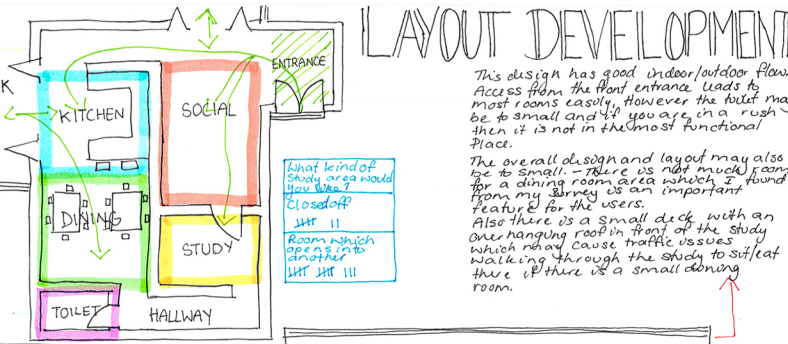 LAYOUT DEVELOPMENT
ENTRANCE
K
KITCHEN
SOCIAL
DINING
STUDY
TOILET
HALLWAY
What kind of
study area would
you like?
Closed off
Room which
opens into
another
This design has good indoor/outdoor flow.
Access from the front entrance leads to
most rooms easily, However the toilet ma
be to small and if you are in a rush
then it is not in the most functional
Place.
The overall design and layout may also
be to small. - There is not much room
for a dining room area which I found
from my survey is an important
feature for the users.
Also there is a small deck with an
overhanging roof in front of the study
which may cause traffic issues
walking through the study to sit/eat
there if there is a small dining
room.